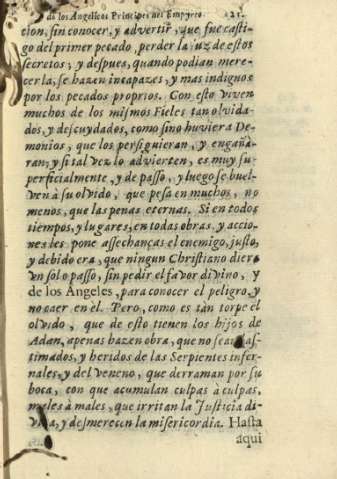 de los Angelicos Principes del Empyreo. 121.
cion, sin conocer, y advertir, que fue casti-
go del primer pecado, perder la luz de estos
secretos; y despues, quando podian mere-
cerla, se hazen incapazes, y mas indignos
por los pecados proprios. Con esto viven
muchos de los mismos Fieles tan olvida-
dos, y descuydados, como sino huviera De-
monios, que los persiguieran, y engañá-
ran; y si tal vez lo advierten, es muy su-
perficialmente, y de passo, y luego se buel-
ven à su olvido, que pesa en muchos, no
menos, que las penas eternas. Si en todos
tiempos, y lugares, en todas obras, y accio-
nes les pone assechanças el enemigo, justo,
y debido era, que ningun Christiano diera
vn solo passo, sin pedir el favor divino, y
de los Angeles, para conocer el peligro, y
no caer en èl. Pero, como es tan torpe el
olvido, que de esto tienen los hijos de
Adan, apenas hazen obra, que no sean las-
timados, y heridos de las Serpientes infer-
nales, y del veneno, que derraman por su
boca, con que acumulan culpas à culpas,
males à males, que irritan la Justicia di-
vina, y desmerecen la misericordia. Hasta
aqui